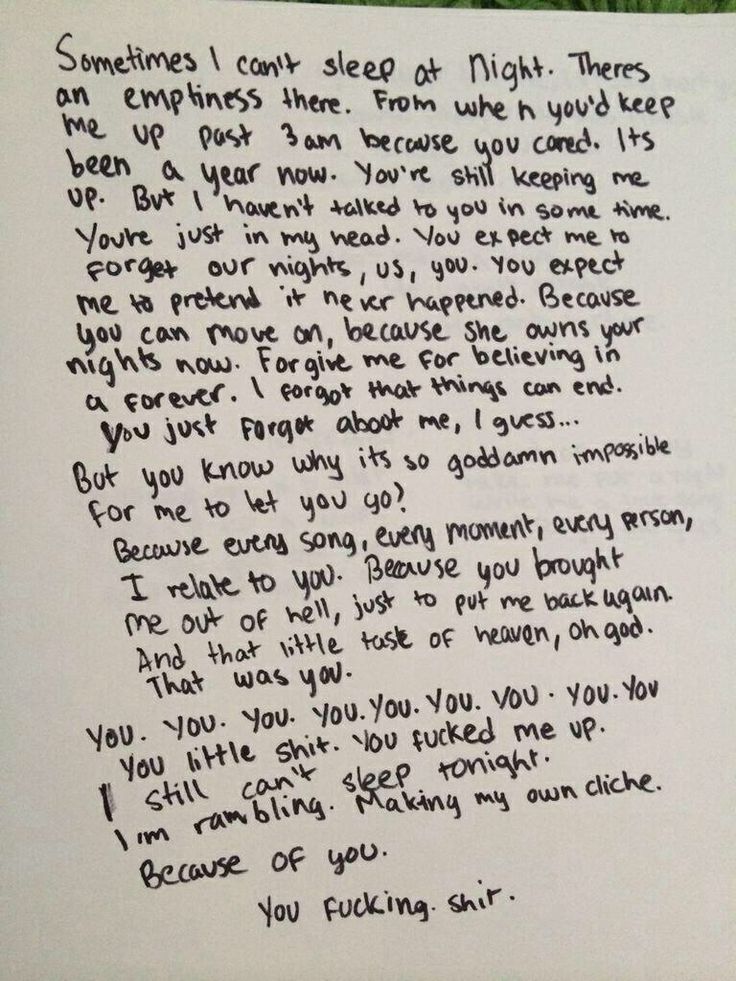 Sometimes I can't sleep at night. Theres
an emptiness there. From when you'd keep
me up past 3am because you cared. Its
been a year now. You're still keeping me
up. But I haven't talked to you in some time.
You're just in my head. You expect me to
forget our nights, us, you. You expect
me to pretend it never happened. Because
you can move on, because she owns your
nights now. Forgive me for believing in
a forever. I forgot that things can end.
You just forgot about me, I guess...
But you know why its so goddamn impossible
for me to let you go?
Because every song, every moment, every person,
I relate to you. Because you brought
me out of hell, just to put me back again.
And that little taste of heaven, oh god.
That was you.
You. You. You. You. You. You. You. You. You
You little shit. You fucked me up.
I still can't sleep tonight.
I'm rambling. Making my own cliche.
Because of you.
You fucking. shit.